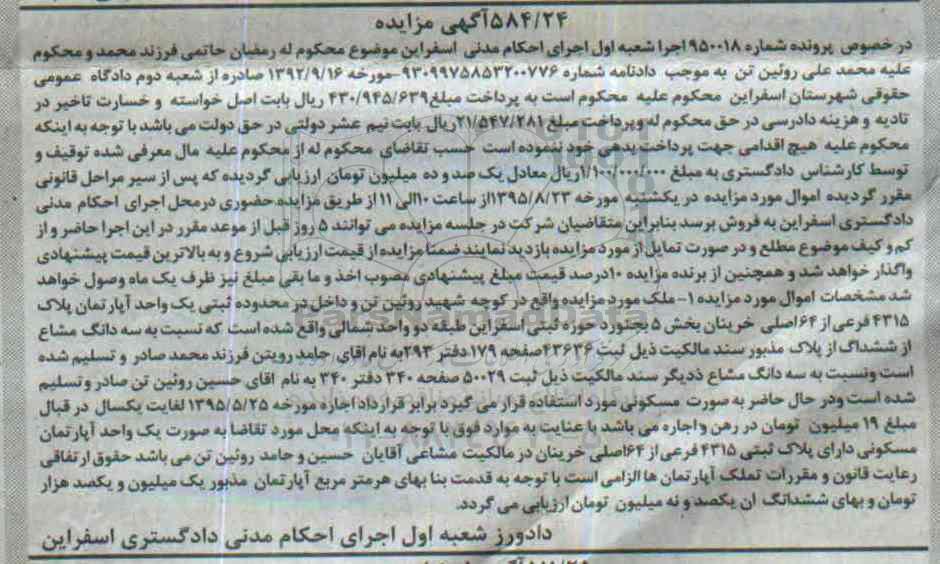 ۵۸۴/۲۴آگهی مزایده
در خصوص پرونده شماره ۹۵۰۰۱۸ اجرا شعبه اول اجرای احکام مدنی اسفراین موضوع محکوم له رمضان حاتمی فرزند محمد و محکوم
علیه محمد علی روئین تن به موجب دادنامه شماره ۹۳۰۹۹۷۵۸۵۳۲۰۰۷۷۶-مورخه ۱۳۹۲/۹/۱۶ صادره از شعبه دوم دادگاه عمومی
حقوقی شهرستان اسفراین محکوم علیه محکوم است به پرداخت مبلغ۴۳۰/۹۴۵/۶۳۹ ریال بابت اصل خواسته و خسارت تاخیر در
تادیه و هزینه دادرسی در حق محکوم له و پرداخت مبلغ ۲۱/۵۴۷/۲۸۱ریال بابت نیم عشر دولتی در حق دولت می باشد با توجه به اینکه
محکوم علیه هیچ اقدامی جهت پرداخت بدهی خود ننموده است حسب تقاضای محکوم له از محکوم علیه مال معرفی شده توقیف و
توسط کارشناس دادگستری به مبلغ ۱/۱۰۰/۰۰۰/۰۰۰ریال معادل یک صد و ده میلیون تومان ارزیابی گردیده که پس از سیر مراحل قانونی
مقرر گردیده اموال مورد مزایده در یکشنبه مورخه ۱۳۹۵/۸/۲۳از ساعت ۱۰الی ۱۱ از طریق مزایده حضوری درمحل اجرای احکام مدنی
دادگستری اسفراین به فروش برسد بنابراین متقاضیان شرکت در جلسه مزایده می توانند ۵ روز قبل از موعد مقرر در این اجرا حاضر و از
کم و کیف موضوع مطلع و در صورت تمایل از مورد مزایده بازدید نمایند ضمنا مزایده از قیمت ارزیابی شروع و به بالاترین قیمت پیشنهادی
واگذار خواهد شد و همچنین از برنده مزایده ۱۰درصد قیمت مبلغ پیشنهادی مصوب اخذ و ما بقی مبلغ نیز ظرف یک ماه وصول خواهد
شد مشخصات اموال مورد مزایده ۱- ملک مورد مزایده واقع در کوچه شهید روئین تن و داخل در محدوده ثبتی یک واحد آپارتمان پلاک
۴۳۱۵ فرعی از ۶۴اصلی خرینان بخش ۵ بجنورد حوزه ثبتی اسفراین طبقه دو واحد شمالی واقع شده است که نسبت به سه دانگ مشاع
از ششداگ از پلاک مذبور سند مالکیت ذیل ثبت ۴۳۶۳۶صفحه ۱۷۹ دفتر ۲۹۳به نام اقای حامد رویتن فرزند محمد صادر و تسلیم شده
است ونسبت به سه دانگ مشاع ذدیگر سند مالکیت ذیل ثبت ۵۰۰۲۹ صفحه ۳۴۰ دفتر ۳۴۰ به نام اقای حسین روئین تن صادر و تسلیم
شده است ودر حال حاضر به صورت مسکونی مورد استفاده قرار می گیرد برابر قرارداد اجاره مورخه ۱۳۹۵/۵/۲۵ لغایت یکسال در قبال
مبلغ ۱۹ میلیون تومان در رهن و اجاره می باشد با عنایت به موارد فوق با توجه به اینکه محل مورد تقاضا به صورت یک واحد آپارتمان
مسکونی دارای پلاک ثبتی ۴۳۱۵ فرعی از ۶۴اصلی خرینان در مالکیت مشاعی آقایان حسین و حامد روئین تن می باشد حقوق ارتفاقی
رعایت قانون و مقررات تملک آپارتمان ها الزامی است با توجه به قدمت بنا بهای هرمتر مربع آپارتمان مذبور یک میلیون و یکصد هزار
تومان و بهای ششدانگ ان یکصد و نه میلیون تومان ارزیابی می گردد.
دادورز شعبه اول اجرای احکام مدنی دادگستری اسفراین
ParsNamadData